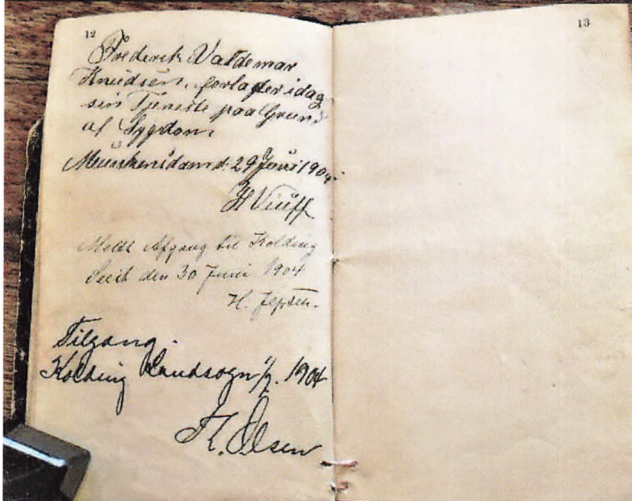 12
Frederik Valdemar
Knudsen, forlader idag
sin Tjeneste paa Grund
af Sygdom.
d. 29 Juni 1904
H Viuff
Meldt Afgang til Kolding
den 30 Juni 1904
H. Jepsen.
Tilgang.
Kolding Landsogn 1/7. 1904
Olsen
13